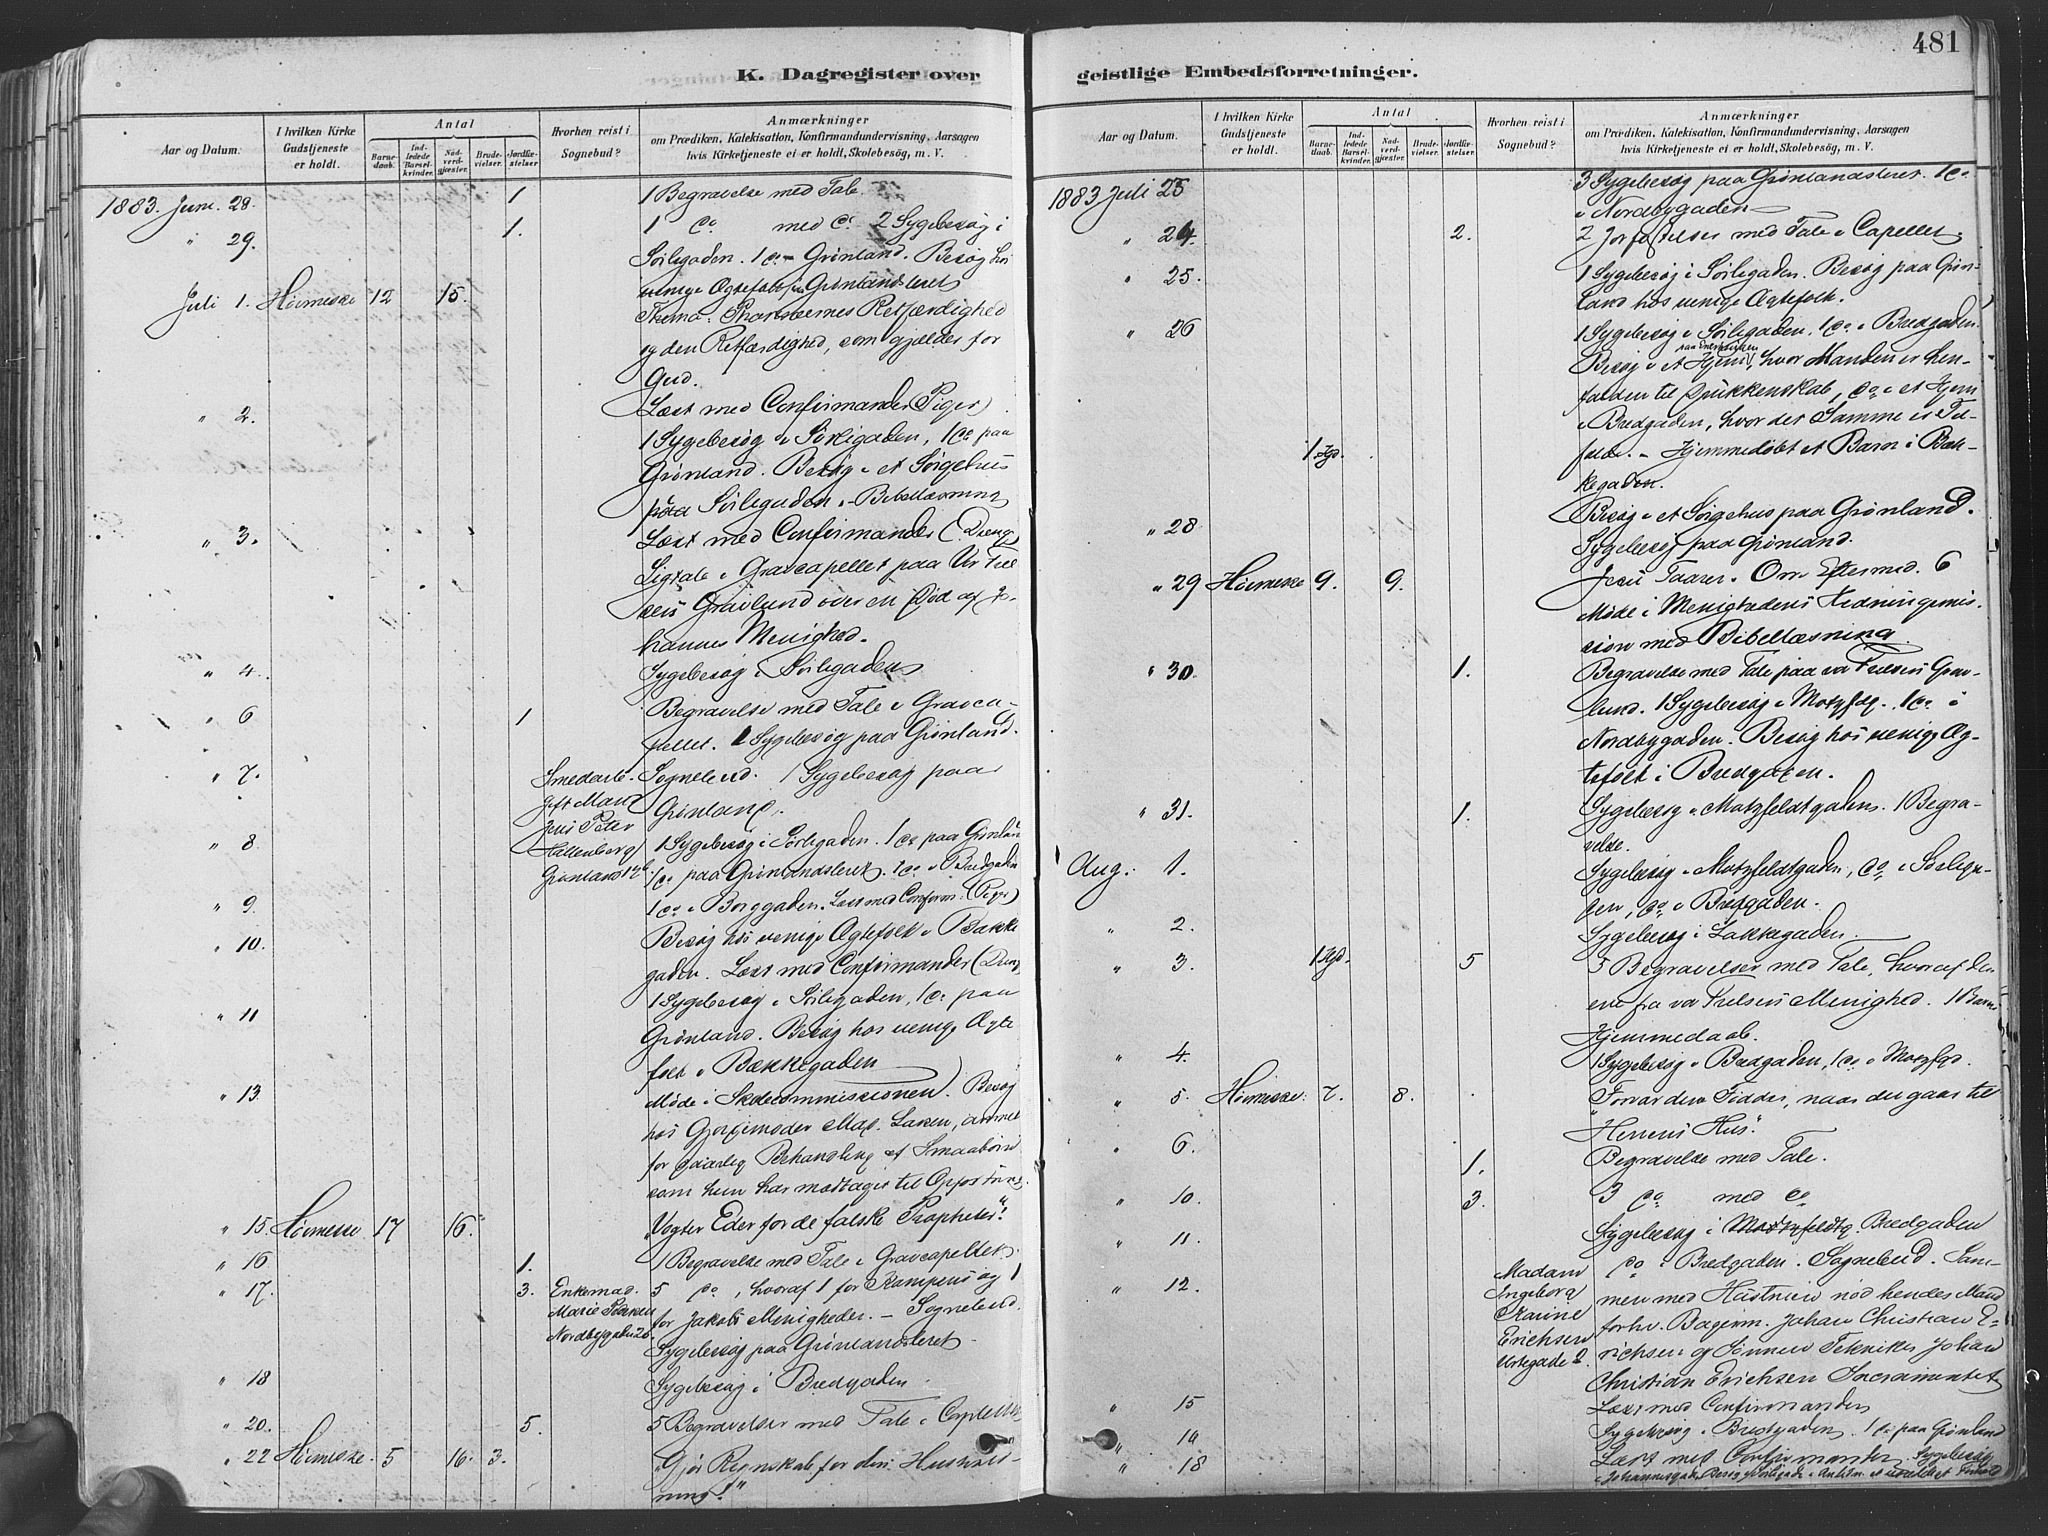 481
K. Dagregister over geistlige Embedsforretninger.
Aar og Datum.
I hvilken Kirke Gudstjeneste er holdt.
Antal
Barnedaab.
Indledede Barselkvinder.
Nadverdgjæster.
Brudevielser.
Jordfæstelser.
Hvorhen reist i Sognebud?
Anmærkninger
om Prædiken, Katekisation, Konfirmandundervisning, Aarsagen
hvis Kirketjeneste ei er holdt, Skolebesøg, m. V.
1883. Juni. 28. 1 1 Begravelse med Tale
" 29. 1. 1 do med do 2 Sygebesøg i
Sørligaden. 1 do Grønland. Besøg hos
uenige Ægtefolk paa Grønlandsleret
Juli 1. Høimesse 12 15. Thema: Pharisæernes Retfærdighed
og den Retfærdighed, som gjælder for
Gud.
" 2. Læst med Confirmander (Piger)
1 Sygebesøg i Sørligaden, 1 do paa
Grønland. Besøg i et Sørgehus
paa Sørligaden. Bibellæsning
" 3. Læst med Confirmander (Drenge)
Ligtale i Gravcapellet paa Vor Frel
sers Gravlund over en Død af Jo-
hannes Menighed.
" 4. Sygebesøg i Sørligaden
" 6 1 Begravelse med Tale i Gravca-
pellet. 1 Sygebesøg paa Grønland.
" 7. Smedarb. Sognebud. 1 Sygebesøg paa
gift Mand Grønland.
Jens Peter
" 8 Hallenberg 1 Sygebesøg i Sørligaden. 1 do paa Grønland
Grønland 12b. 1 do paa Grønlandsleret. 1 do i Bredgaden
" 9 1 do i Borggaden. Læst med Confirm. (Piger)
" 10. Besøg hos uenige Ægtefolk i Bakke
gaden. Læst med Confirmander (Dreng)
" 11 1 Sygebesøg i Sørligaden, 1 do paa
Grønland. Besøg hos uenige Ægte
folk i Bakkegaden
" 13 Møde i Skolecommissionen. Besøg
hos Gjordemoder Mad. Laken, anmel
for daarlig Behandling af Smaabørn
som hun har modtaget til Opfostring.
" 15 Høimesse 17 16. "Vogter Eder for de falske Propheter."
" 16 1. 1 Begravelse med Tale i Gravcapellet.
" 17. 3. Enkemad. 5 do, hvoraf 1 for Kampens og 1
Marie for Jakobs Menigheder. – Sognebud.
Nordbygaden 20. Sygebesøg paa Grønlandsleret
" 18 Sygebesøg i Bredgaden.
" 20. 5. 5 Begravelser med Tale i Capellet
" 22 Høimesse. 5 16. 3. "Gjør Regnskab for din Hushold-
ning!"
Aar og Datum.
I hvilken Kirke Gudstjeneste er holdt.
Antal
Barnedaab.
Indledede Barselkvinder.
Nadverdgjæster.
Brudevielser.
Jordfæstelser.
Hvorhen reist i Sognebud?
Anmærkninger
om Prædiken, Katekisation, Konfirmandundervisning, Aarsagen
hvis Kirketjeneste ei er holdt, Skolebesøg, m. V.
1883 Juli 23 3 Sygebesøg paa Grønlandsleret. 1 do
i Nordbygaden
" 24. 2. 2 Jordfæstelser med Tale i Capellet.
" 25. 1 Sygebesøg i Sørligaden. Besøg paa Grøn-
land hos uenige Ægtefolk.
" 26 1 Sygebesøg i Sørligaden. 1 do i Bredgaden.
Besøg i et Hjem, hvor Manden er hen-
falden til Drukkenskab, do i et Hjem
i Bredgaden, hvor det Samme er Til-
1 Hjd. fælde. – Hjemmedøbt et Barn i Bak-
kegaden.
" 28 Besøg i et Sørgehus paa Grønland.
Sygebesøg paa Grønland.
" 29 Høimesse 9. 9. Jesu Taarer. Om Eftermed. 6
Møde i Menighedens Hedningemis-
sion med Bibellæsning.
" 30. 1. Begravelse med Tale paa vor Frelsers Grav-
lund. 1 Sygebesøg i Motzfdg. 1 do i
Nordbygaden. Besøg hos uenige Æg-
tefolk i Bredgaden.
" 31. 1. Sygebesøg i Motzfeldtgaden. 1 Begra-
velse.
Aug. 1. Sygebesøg i Motzfeldtgaden, do i Sørliga-
den, do i Bredgaden.
" 2. Sygebesøg i Lakkegaden.
" 3. 1 Hjd. 5 5 Begravelser med Tale, hvoraf den
ene fra vor Frelsers Menighed. 1 Barn
Hjemmedaab.
" 4. 1 Sygebesøg i Bredgaden, 1 do i Motzfgd.
" 5. Høimesse. 7. 8. "Forvar dine Fødder, naar du gaar til
Herrens Hus".
" 6. 1. Begravelse med Tale.
" 10. 3. 3 do med do
" 11. Sygebesøg i Bredgaden
" 12. Madam do i Bredgaden. Sognebud. Sam-
Ingeborg men med Hustruen nød hendes Mand
Karine forhv. Bagerm. Johan Christian E-
Erichsen richsen og Sønnen Tekniker Johan
Urtegaden 2. Christian Erichsen Sacramentet
" 15 Læst med Confirmander
" 14 Sygebesøg i Bredgaden. 1 do paa Grønland
" 18 Læst med Confirmanter. Sygebesøg
i Johannesgaden Besøg i Sørligaden i Anledn. af